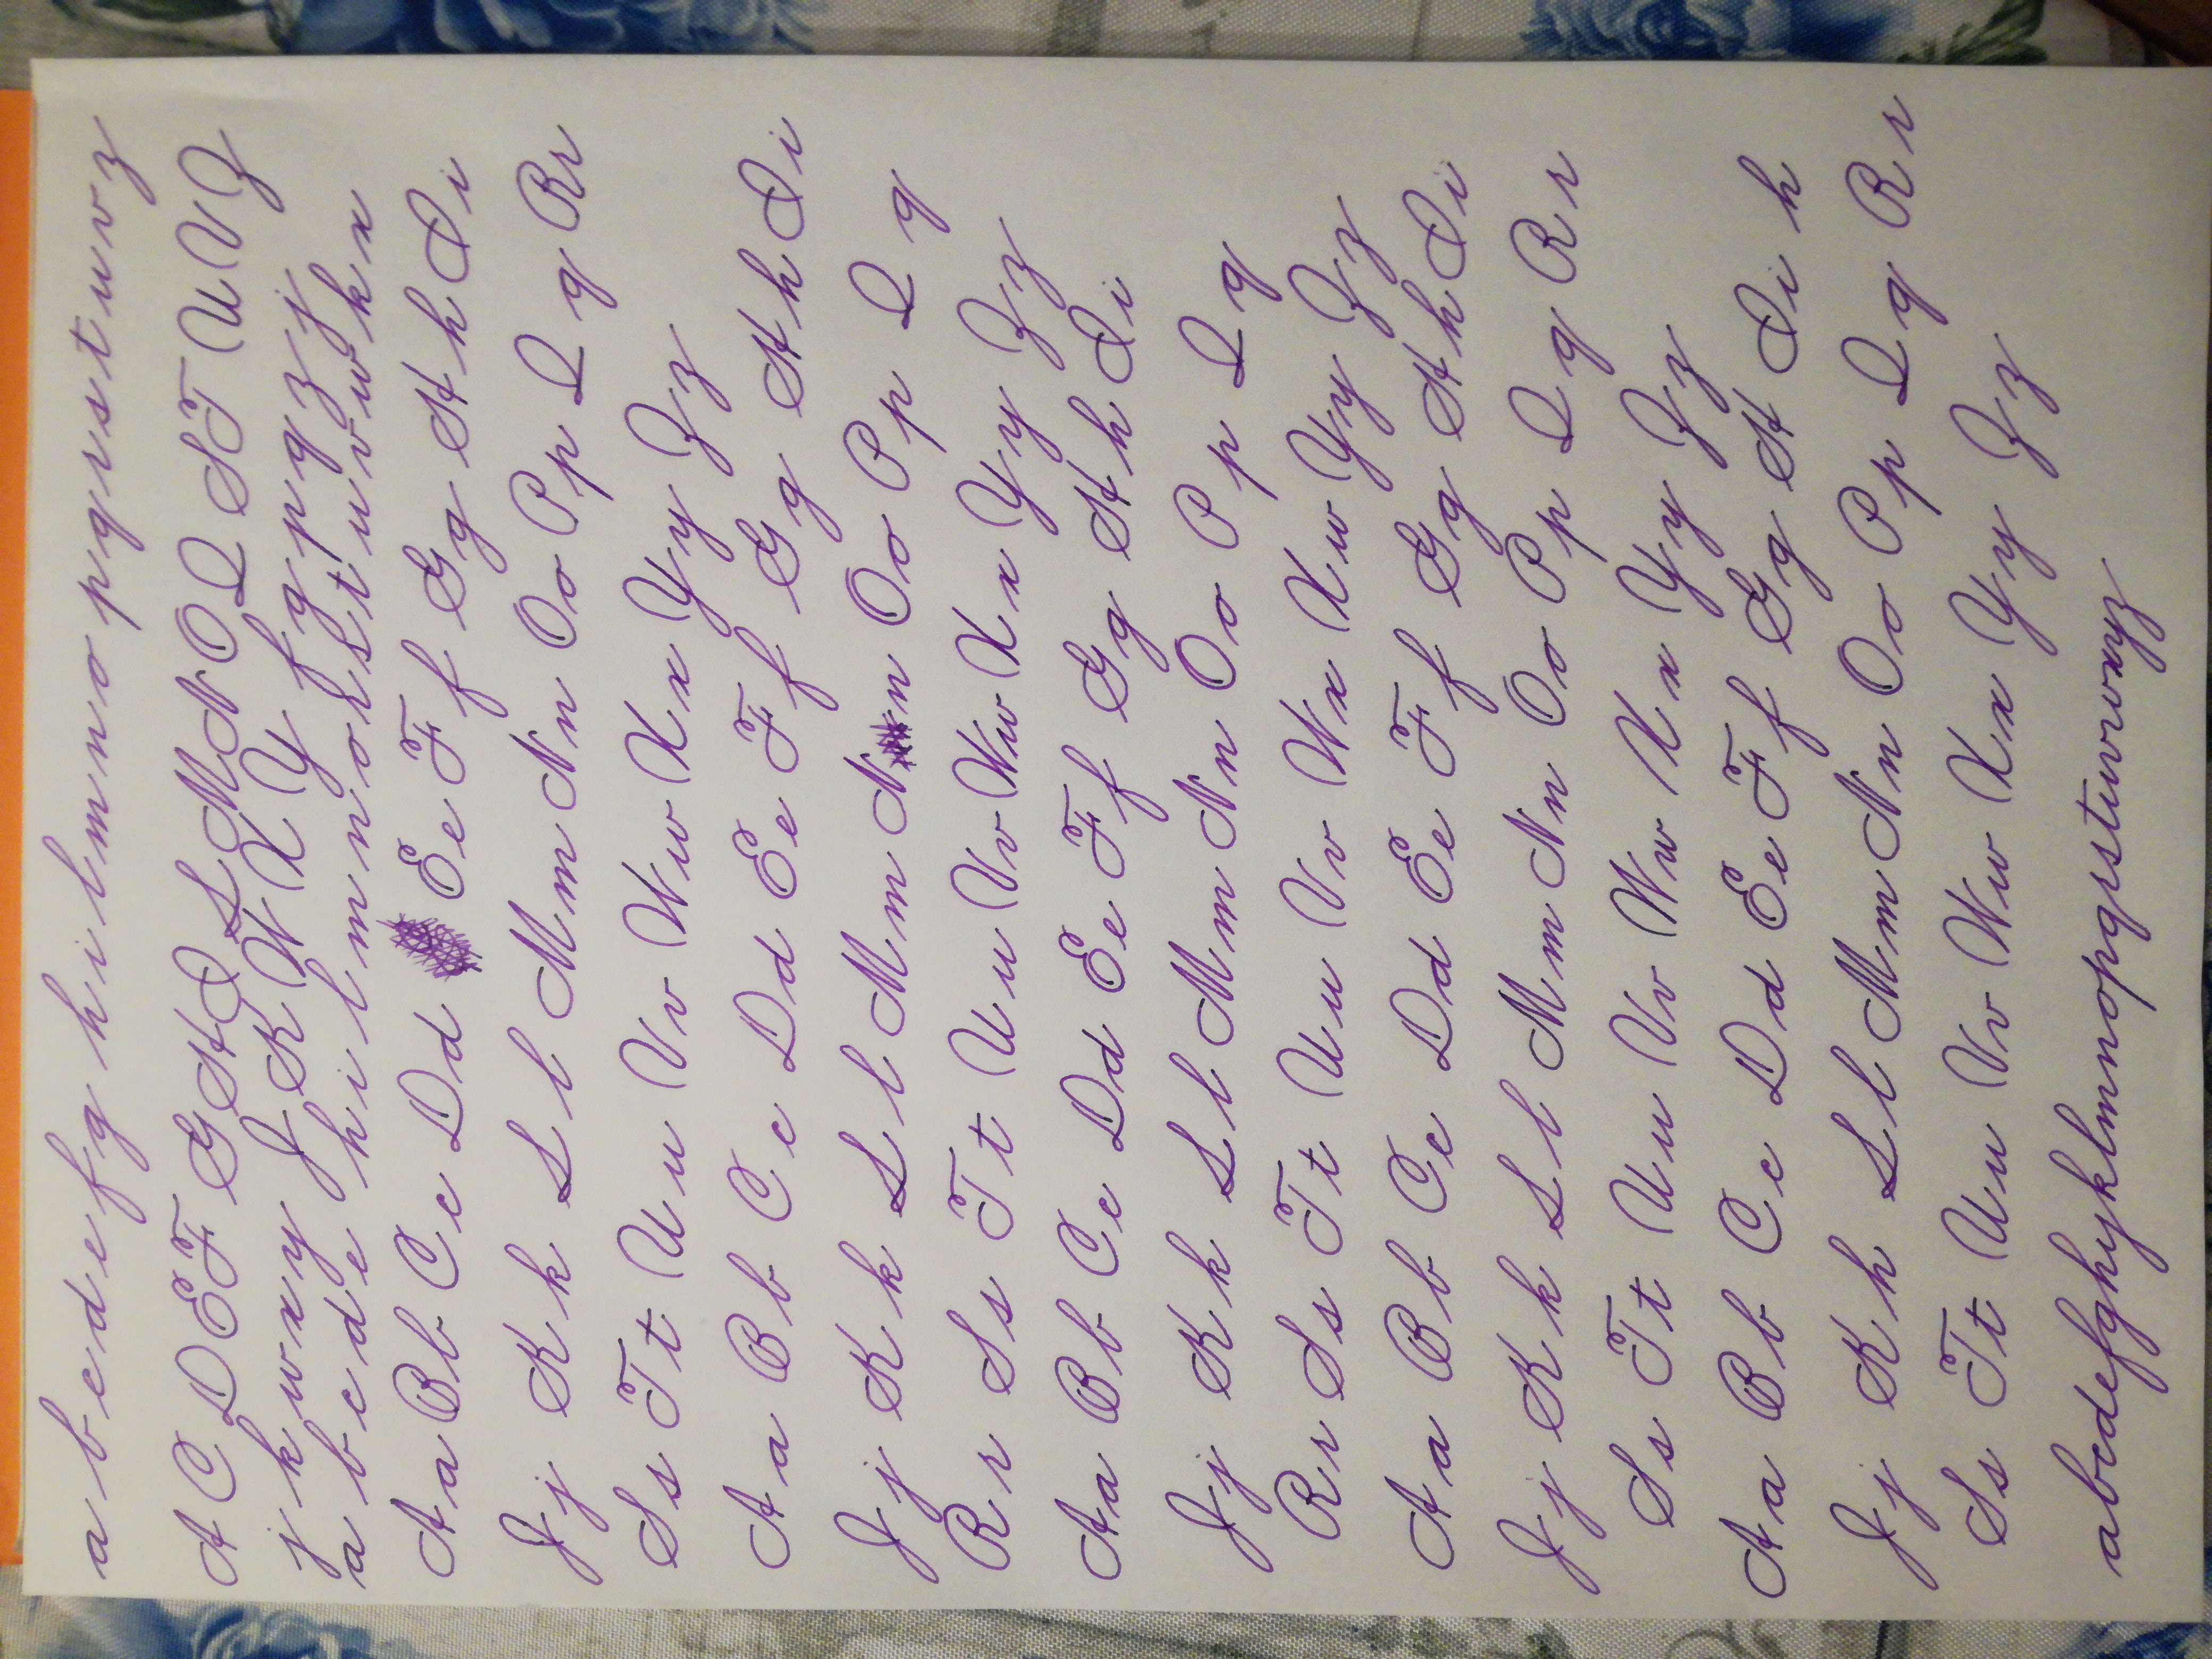 a b c d e f g h i l m n o p q r s t u v z
A C D E F G H I L M N O Q S T U V Z
j k w x y J K W X Y f g p q z j
a b c d e h i l m n o r s t u v w k x
A a B b C c D d E e F f G g H h I i
J j K k L l M m N n O o P p Q q R r
S s T t U u V v W w X x Y y Z z
A a B b C c D d E e F f G g H h I i
J j K k L l M m N n O o P p Q q
R r S s T t U u V v W w X x Y y Z z
A a B b C c D d E e F f G g H h I i
J j K k L l M m N n O o P p Q q
R r S s T t U u V v W x X w Y y Z z
A a B b C c D d E e F f G g H h I i
J j K k L l M m N n O o P p Q q R r
S s T t U u V v W w X x Y y Z z
A a B b C c D d E e F f G g H I i h
J j K k L l M m N n O o P p Q q R r
S s T t U u V v W w X x Y y Z z
abcdefghijklmnopqrstuvwxyz